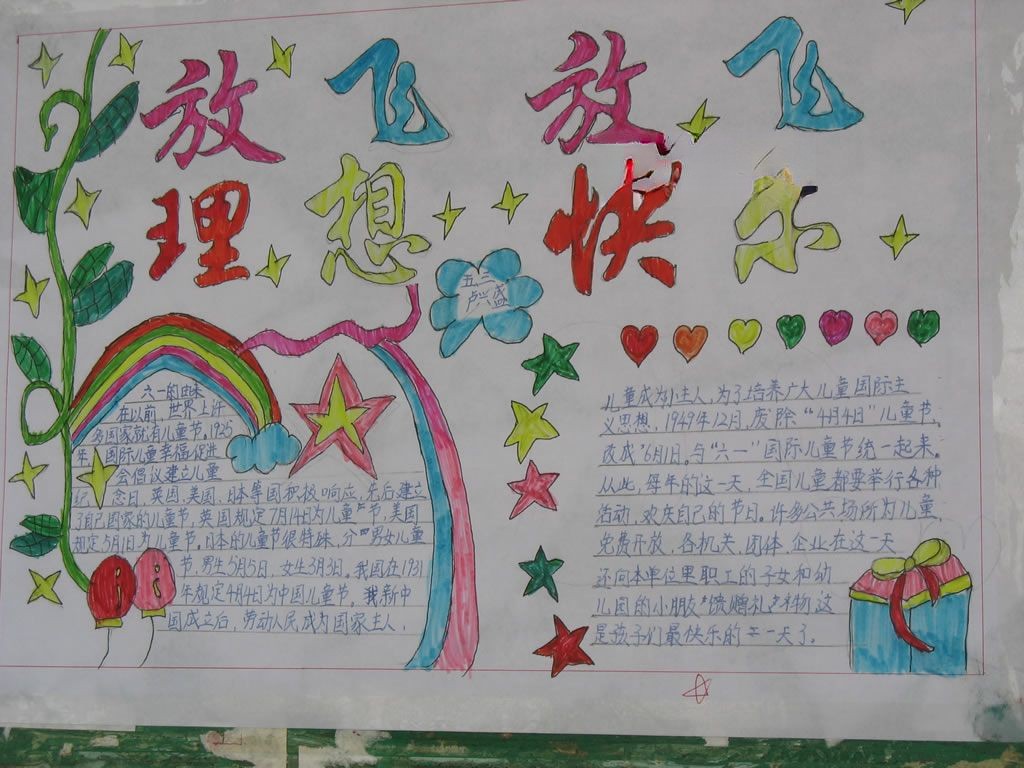 放飞 放飞
理想 快乐
五三
卢兴盛
六一的由来
在以前,世界上许
多国家就有儿童节。1925
年,国际儿童幸福促进
会倡议建立儿童
纪念日,英国,美国,日本等国积极响应,先后建立
了自己国家的儿童节,英国规定7月14日为儿童节,美国
规定5月1日为儿童节。日本的儿童节很特殊,分男女儿童
节,男生5月5日,女生3月3日。我国在1931
年规定4月4日为中国儿童节。我新中
国成立后,劳动人民成为国家主人,
儿童成为小主人,为了培养广大儿童国际主
义思想,1949年12月,废除“4月4日”儿童节,
改成6月1日。与“六一”国际儿童节统一起来。
从此,每年的这一天,全国儿童都要举行各种
活动,欢庆自己的节日。许多公共场所为儿童
免费开放,各机关,团体,企业在这一天
还向本单位里职工的子女和幼
儿园的小朋友馈赠礼物,这
是孩子们最快乐的一天了。